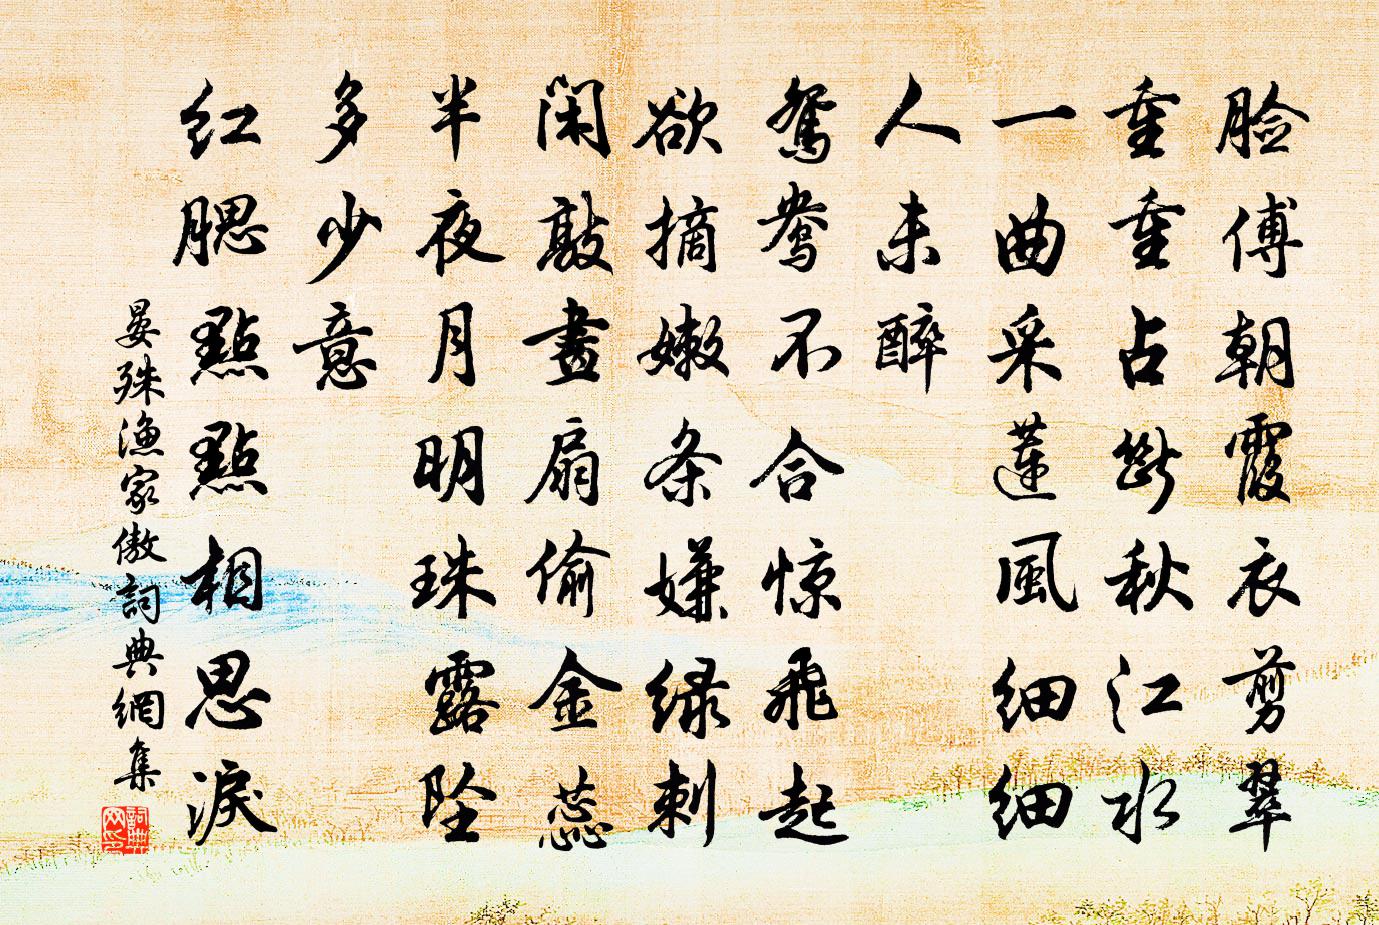 脸傅朝霞衣剪翠
重重占断秋江水
一曲采莲風细细
人未醉
鸳鸯不合惊飛起
欲摘嫩条嫌绿刺
闲敲畫扇偷金蕊
半夜月明珠露坠
多少意
红腮點點相思淚
晏殊漁家傲詞典網集
詞典网印